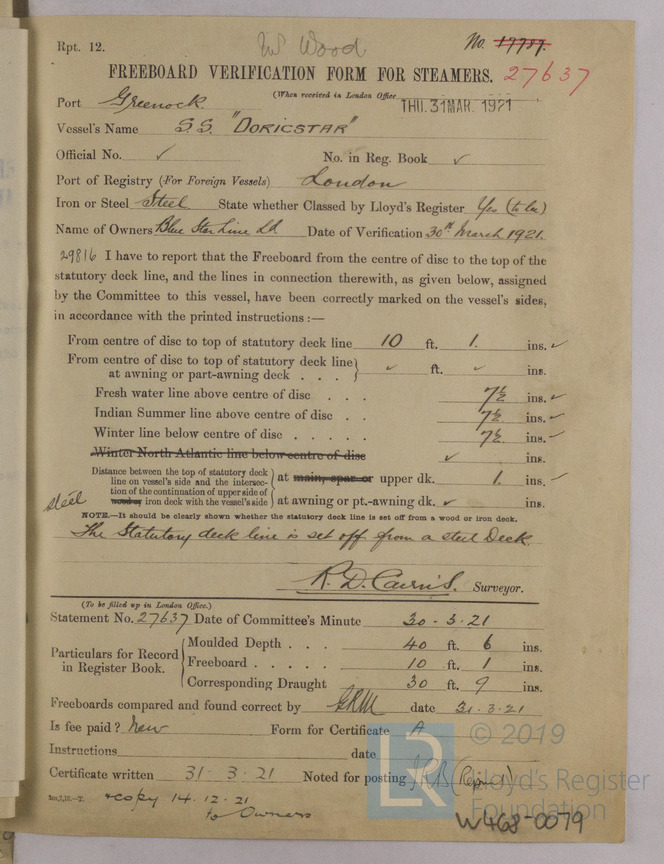 Rpt. 12.
W Wood
No. 17787.
27637
FREEBOARD VERIFICATION FORM FOR STEAMERS.
(When received in London Office
THU. 31 MAR. 1921
Port Greenock
Vessel's Name S.S. "DORICSTAR"
Official No. ✓ No. in Reg. Book ✓
Port of Registry (For Foreign Vessels) London
Iron or Steel Steel State whether Classed by Lloyd's Register Yes (to be)
Name of Owners Blue Star Line Ld Date of Verification 30th March 1921.
29816 I have to report that the Freeboard from the centre of disc to the top of the
statutory deck line, and the lines in connection therewith, as given below, assigned
by the Committee to this vessel, have been correctly marked on the vessel's sides,
in accordance with the printed instructions :—
From centre of disc to top of statutory deck line 10 ft. 1. ins. ✓
From centre of disc to top of statutory deck line
at awning or part-awning deck . . . ✓ ft. ✓ ins.
Fresh water line above centre of disc . . . 7½ ins. ✓
Indian Summer line above centre of disc . . 7½ ins. ✓
Winter line below centre of disc . . . . . 7½ ins. ✓
Winter North Atlantic line below centre of disc ✓ ins.
Distance between the top of statutory deck
line on vessel's side and the intersec-
tion of the continuation of upper side of
wood or iron deck with the vessel's side
at main, spar or upper dk. 1. ins. ✓
steel
at awning or pt.-awning dk. ✓ ins.
NOTE.—It should be clearly shown whether the statutory deck line is set off from a wood or iron deck.
The Statutory deck line is set off from a steel Deck.
R. D. Cairns. Surveyor.
(To be filled up in London Office.)
Statement No. 27637 Date of Committee's Minute 30 - 3 - 21
Particulars for Record
in Register Book.
Moulded Depth . . . 40 ft. 6 ins.
Freeboard . . . . . 10 ft. 1 ins.
Corresponding Draught 30 ft. 9 ins.
Freeboards compared and found correct by GRM date 31.3.21
Is fee paid? New Form for Certificate A
Instructions date
Certificate written 31 - 3 - 21 Noted for posting
+copy 14.12.21
to Owners
© 2019
LR
Lloyd's Register
Foundation
W468-0079